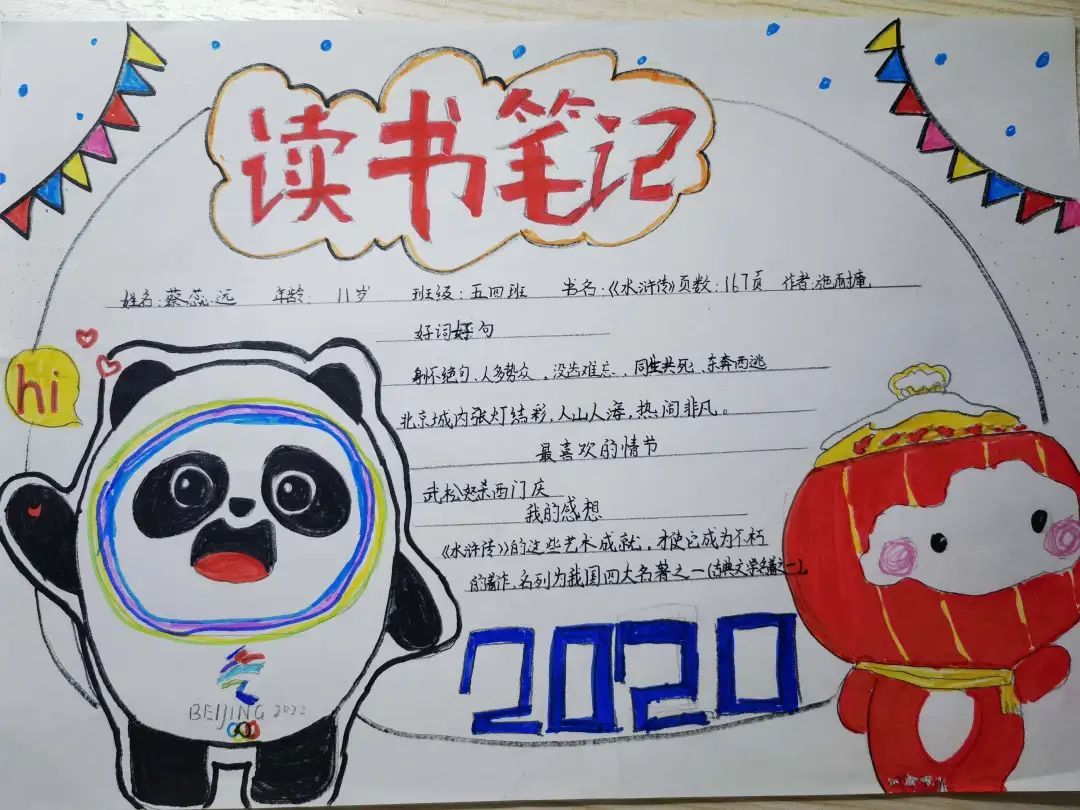 读书笔记
姓名:蔡蕊远 年龄: 11岁 班级:五四班 书名:《水浒传》页数:167页 作者:施耐庵
好词好句
身怀绝句、人多势众、没齿难忘、同生共死、东奔西逃
北京城内张灯结彩,人山人海,热闹非凡。
最喜欢的情节
武松怒杀西门庆
我的感想
《水浒传》的这些艺术成就,才使它成为不朽
的著作,名列为我国四大名著之一(古典文学名著之一)。
hi
2020
BEIJING 2022